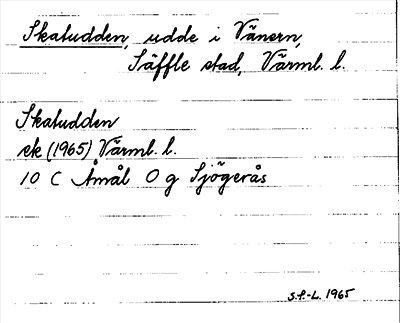 Skatudden, udde i Vänern,
Säffle stad, Värml. l.
Skatudden
ek (1965) Värml. l.
10 C Åmål O g Sjögerås
S.P.-L. 1965